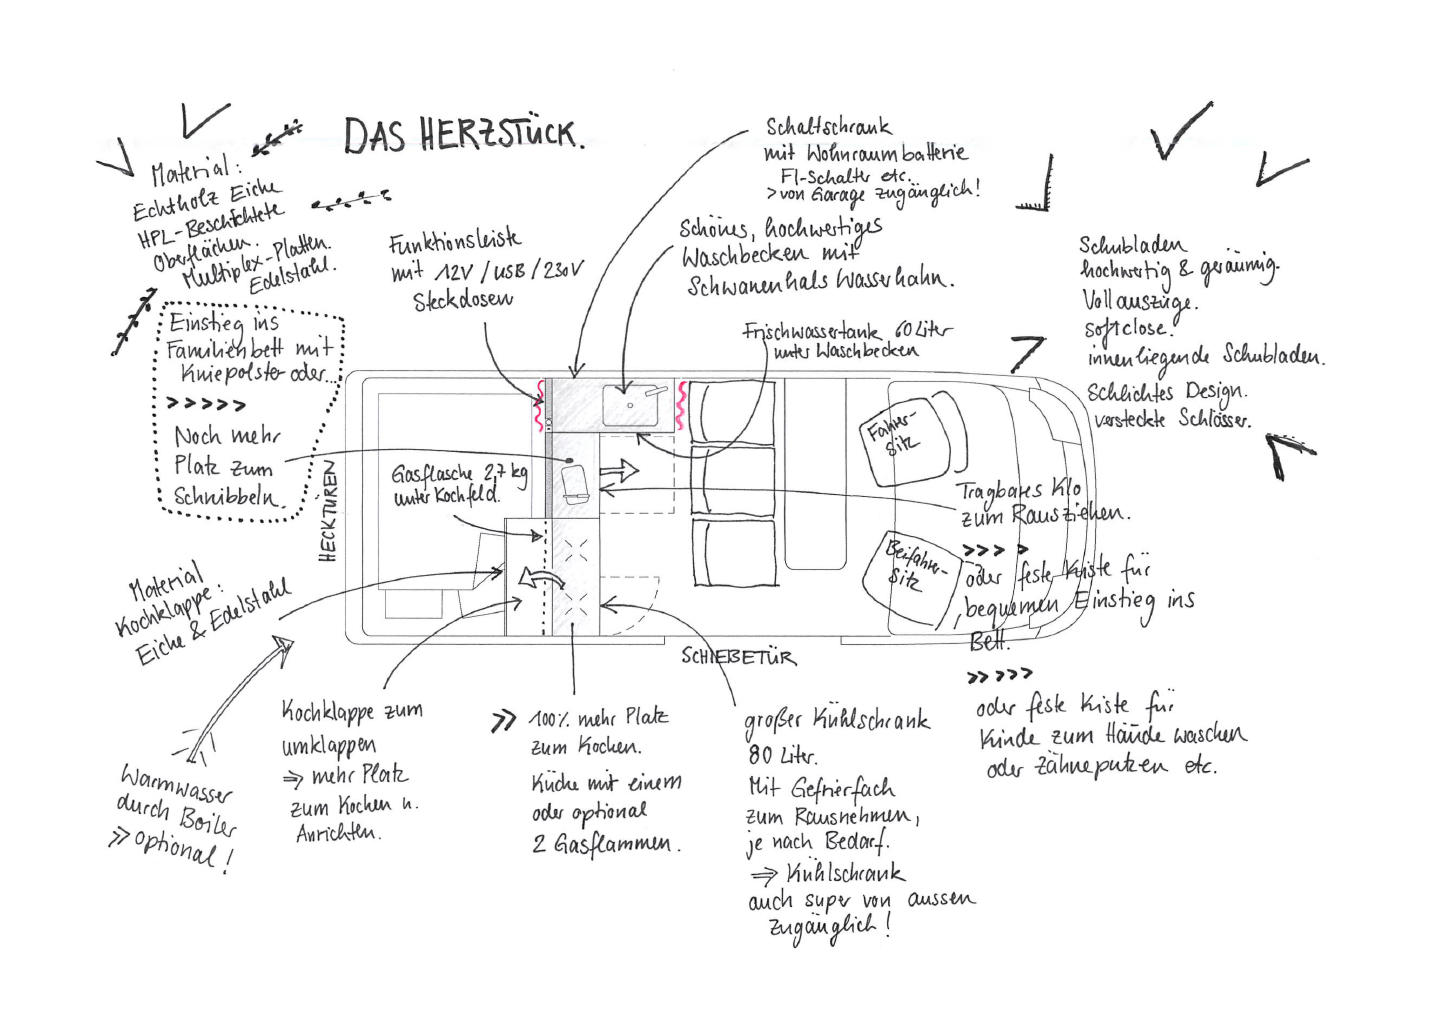 DAS HERZSTÜCK.
Material:
Echtholz Eiche
HPL-Beschichtete
Oberflächen.
Multiplex-Platten.
Edelstahl.
Einstieg ins
Familienbett mit
Kniepolster oder...
>>>>>
Noch mehr
Platz zum
Schnibbeln.
Funktionsleiste
mit 12V / USB / 230V
Steckdosen
Schaltschrank
mit Wohnraumbatterie
FI-Schalter etc.
> von Garage zugänglich!
Schönes, hochwertiges
Waschbecken mit
Schwanenhals Wasserhahn.
Frischwassertank 60 Liter
unter Waschbecken
Schubladen
hochwertig & geräumig.
Vollauszüge.
softclose.
innenliegende Schubladen.
Schlichtes Design.
versteckte Schlösser.
HECKTÜREN
Gasflasche 2,7 kg
unter Kochfeld.
Fahrer-
Sitz
Beifahrer-
Sitz
Tragbares Klo
zum Rausziehen.
>>> >
oder feste Kiste für
bequemen Einstieg ins
Bett.
>>>>>
oder feste Kiste für
Kinde zum Hände waschen
oder Zähneputzen etc.
SCHIEBETÜR
Material
Kochklappe:
Eiche & Edelstahl
Warmwasser
durch Boiler
>> optional!
Kochklappe zum
umklappen
⇒ mehr Platz
zum Kochen u.
Anrichten.
>> 100% mehr Platz
zum Kochen.
Küche mit einem
oder optional
2 Gasflammen.
großer Kühlschrank
80 Liter.
Mit Gefrierfach
zum Rausnehmen,
je nach Bedarf.
⇒ Kühlschrank
auch super von aussen
zugänglich!